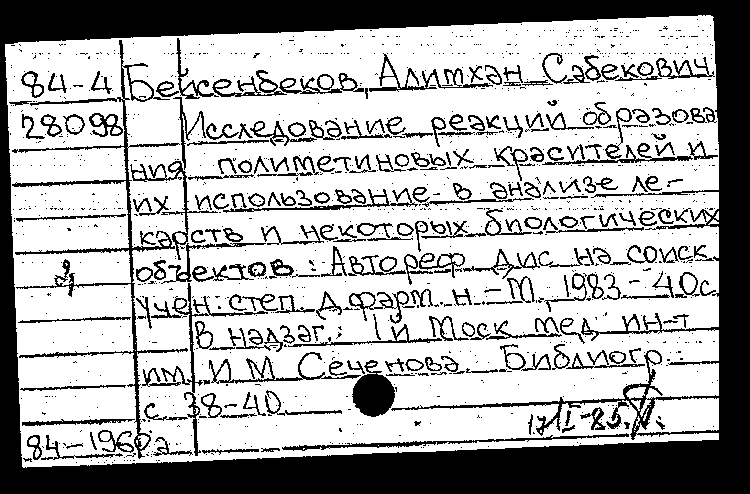 84-4 Бейсенбеков, Алимхан Сабекович
28098 Исследование реакций образова
ния полиметиновых красителей и
их использование в анализе ле-
карств и некоторых биологических
объектов : Автореф. дис на соиск.
учен. степ. д. фарм. н. - М., 1983 - 40с.
В надзаг.: 1й Моск мед. ин-т
им. И М Сеченова. Библиогр.:
с 38-40.
84-1960а